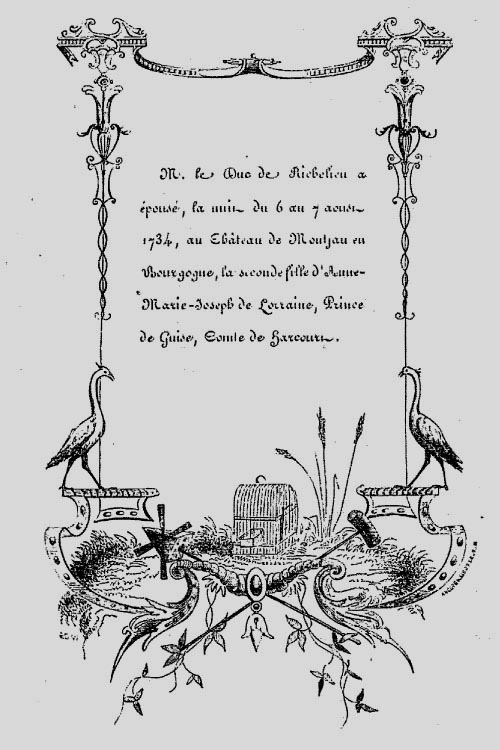 M. le Duc de Richelieu a
épousé, la nuit du 6 au 7 aoust
1734, au Château de Montjau en
Bourgogne, la seconde fille d'Anne-
Marie-Joseph de Lorraine, Prince
de Guise, Comte de Harcourt.